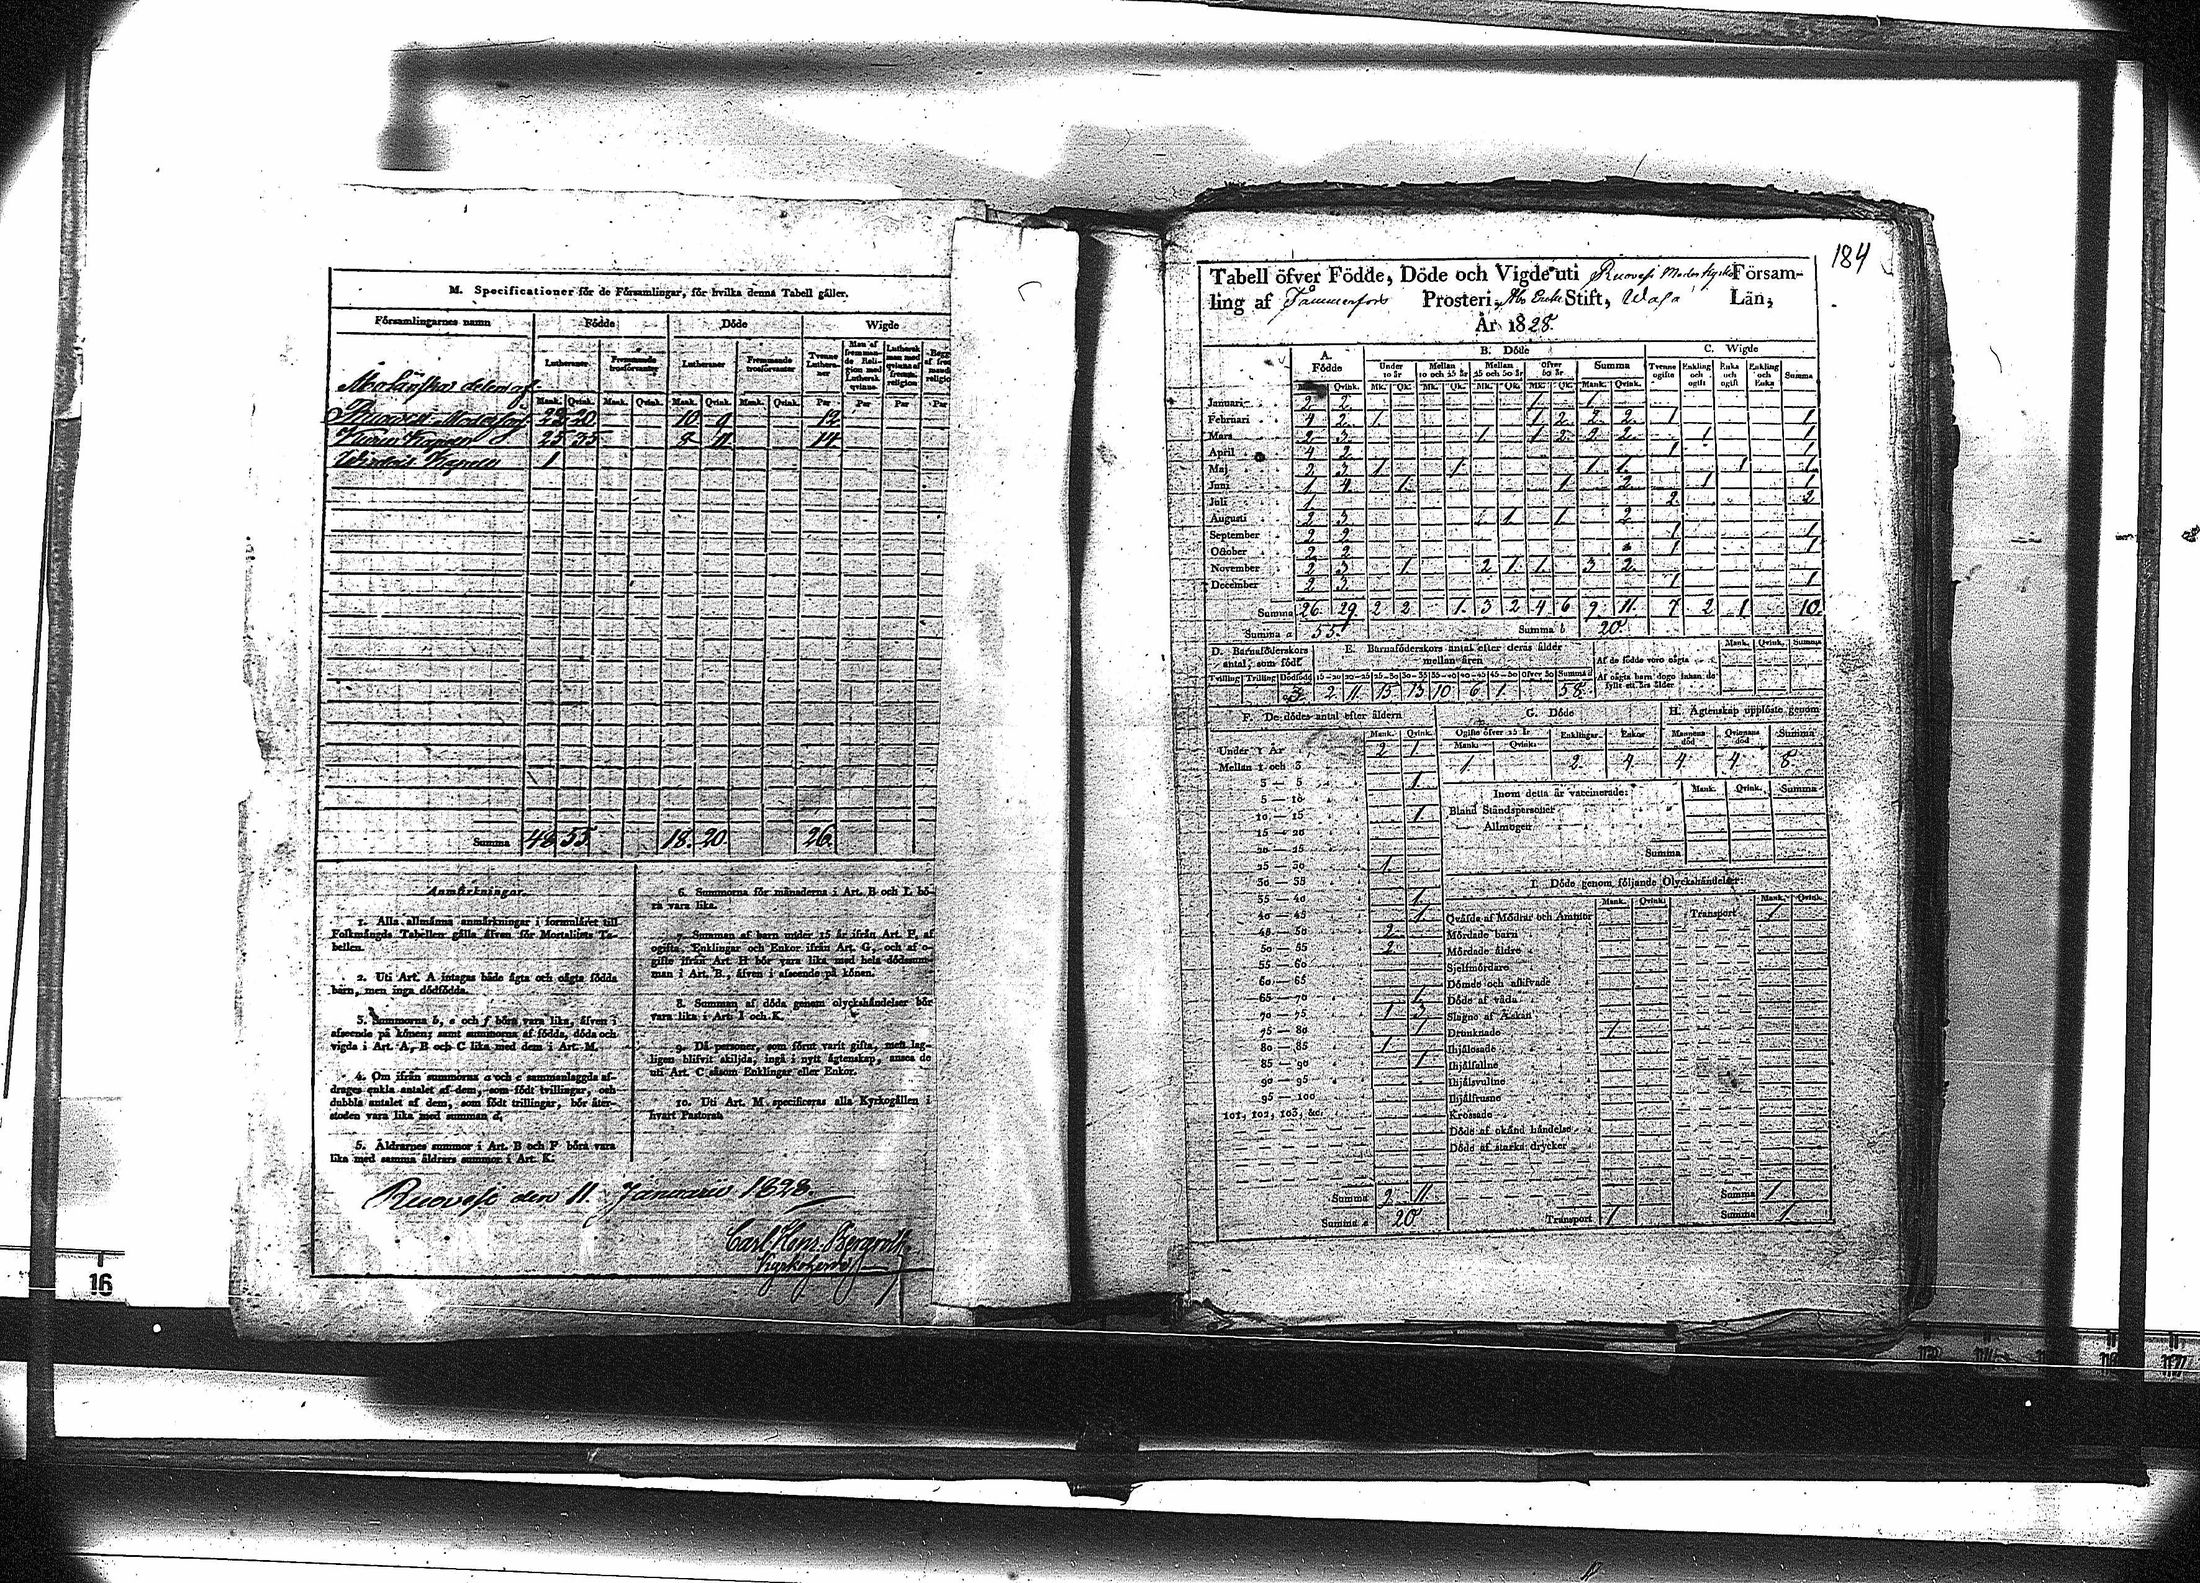 M. Specificationer för de Församlingar, för hvilka denna Tabell gäller.
Församlingarnes namn Födde Döde Wigde
Lutheraner Fremmande trosförvanter Lutheraner Fremmande trosförvanter Tvenne Lutheraner Man af fremmande Religion med Luthersk qvinna Luthersk man med qvinna af fremm. religion
Mank. Qvink. Mank. Qvink. Mank. Qvink. Mank. Qvink. Par Par Par Par
delen af
20 10 9 12
25 35 8 11 14
Kapell 1
Summa 48 55 18 20 26
Anmärkningar.
1. Alla allmänna anmärkningar i formuläret till
Folkmängds Tabellen gälla äfven för Mortalitets Ta-
bellen.
2. Uti Art. A intagas både ägta och oägta födda
barn, men inga dödfödda.
3. Summorna b, e och f böra vara lika, äfven i
afseende på könen; samt summorna af födda, döda och
vigda i Art. A, B och C lika med dem i Art. M.
4. Om ifrån summorna a och c sammanlagda af-
drages enkla antalet af dem, som födt tvillingar, och
dubbla antalet af dem, som födt trillingar, bör åter-
stoden vara lika med summan d.
5. Åldrarnes summor i Art. B och F böra vara
lika med samma åldrars summor i Art. K.
6. Summorna för månaderna i Art. B och L bö-
ra vara lika.
7. Summan af barn under 15 år ifrån Art. F, af
ogifta, Enklingar och Enkor ifrån Art. G, och af o-
gifte ifrån Art. H bör vara lika med hela dödssum-
man i Art. B, äfven i afseende på könen.
8. Summan af döda genom olyckshändelser bör
vara lika i Art. I och K.
9. Då personer, som förut varit gifta, men lag-
ligen blifvit skiljda, ingå i nytt ägtenskap, anses de
uti Art. C såsom Enklingar eller Enkor.
10. Uti Art. M. specificeras alla Kyrkogällen i
hvart Pastorat.
Ruovesi den 11 Januarii 1828.
Carl Hens. Bergroth
Kyrkoherde
184
Tabell öfver Födde, Döde och Vigde uti Ruovesi Moderkyrko Försam-
ling af Tammerfors Prosteri, Åbo Erke Stift, Wasa Län,
År 1828.
A. Födde B. Döde C. Wigde
Under 10 år Mellan 10 och 25 år Mellan 25 och 50 år Öfver 50 år Summa Tvenne ogifte Enkling och ogift Enka och ogift Enkling och Enka Summa
Qvink. Mk. Qk. Mk. Qk. Mk. Qk. Mk. Qk. Mank. Qvink.
Januari 2 2 1 1
Februari 4 2 1 1 2 2 2 1 1
Mars 2 3 1 1 2 2 2 1 1
April 4 2 1 1
Maj 2 3 1 1 1 1 1 1
Juni 1 4 1 1 2 1 1
Juli 1 2 2
Augusti 2 3 1 1 2
September 2 2 1 1
October 2 2 1 1
November 2 3 1 2 1 1 3 2
December 2 3 1 1
Summa 26 29 2 2 1 3 2 4 6 9 11 7 2 1 10
Summa a 55 Summa b 20
D. Barnaföderskors antal, som födt E. Barnaföderskors antal efter deras ålder mellan åren Mank. Qvink. Summa
Af de födde voro oägta
Af oägta barn dogo innan de fyllt ett års ålder
Tvilling Trilling Dödfödd 15—20 20—25 25—30 30—35 35—40 40—45 45—50 Öfver 50 Summa d
3 2 11 15 13 10 6 1 58
F. De dödes antal efter åldern G. Döde H. Ägtenskap upplöste genom
Mank. Qvink. Ogifte öfver 15 år Mank. Qvink. Enklingar Enkor Mannens död Qvinnans död Summa
Under 1 År 2 1
1 2 4 4 4 8
Mellan 1 och 3
3 — 5 1
5 — 10
10 — 15 1
15 — 20
20 — 25
25 — 30 1
30 — 35
35 — 40 1
40 — 45 1
45 — 50 2
50 — 55 2
55 — 60
60 — 65
65 — 70 1
70 — 75 1 3
75 — 80 1
80 — 85 1
85 — 90 1
90 — 95
95 — 100
101, 102, 103, &c.
Summa 9 11
Summa e 20
Inom detta år vaccinerade: Mank. Qvink. Summa
Bland Ståndspersoner
— Allmogen
Summa
I. Döde genom följande Olyckshändelser:
Mank. Qvink. Mank. Qvink.
Qväfda af Mödrar och Ammor Transport 1
Mördade barn
Mördade äldre
Sjelfmördare
Dömde och aflifvade
Döde af våda
Slagne af Åskan
Drunknade 1
Ihjälosade
Ihjälfallne
Ihjälsvultne
Ihjälfrusne
Krossade
Döde af okänd händelse
Döde af starka drycker
Summa 1
Transport 1 Summa 1
16